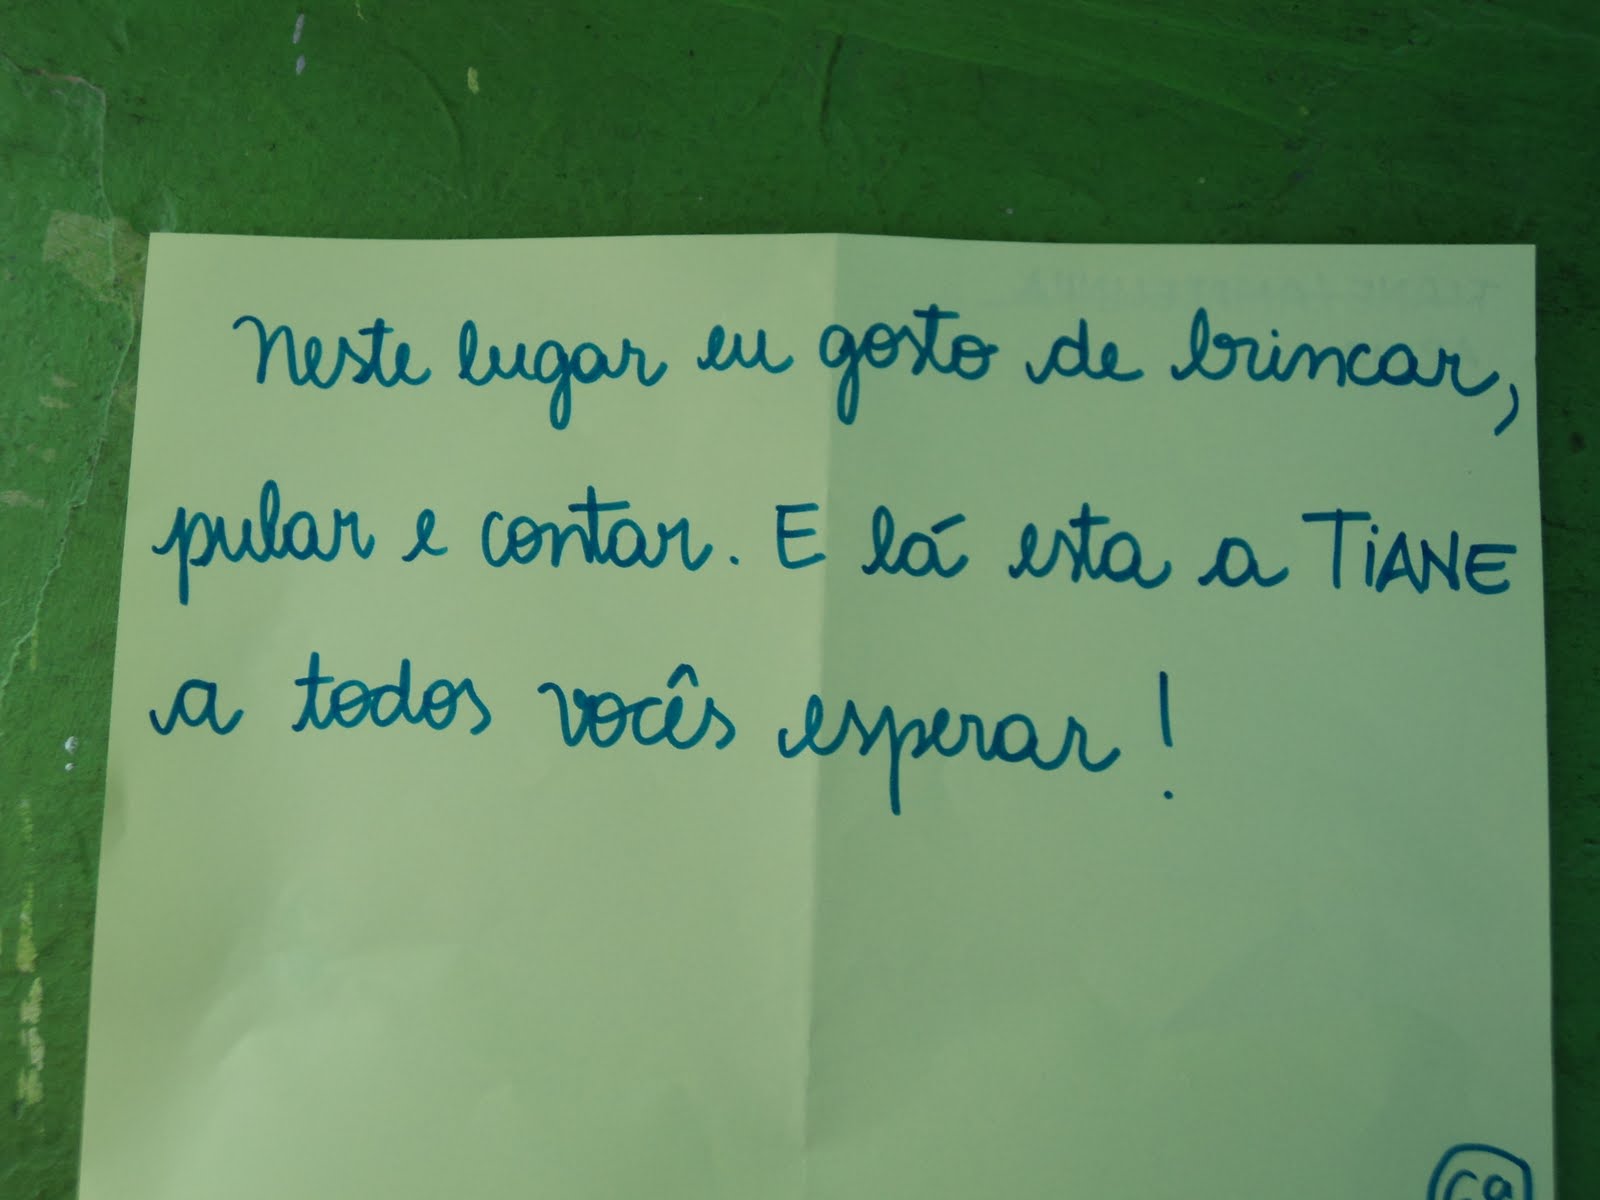 Neste lugar eu gosto de brincar,
pular e contar. E lá esta a TiANE
a todos vocês esperar!